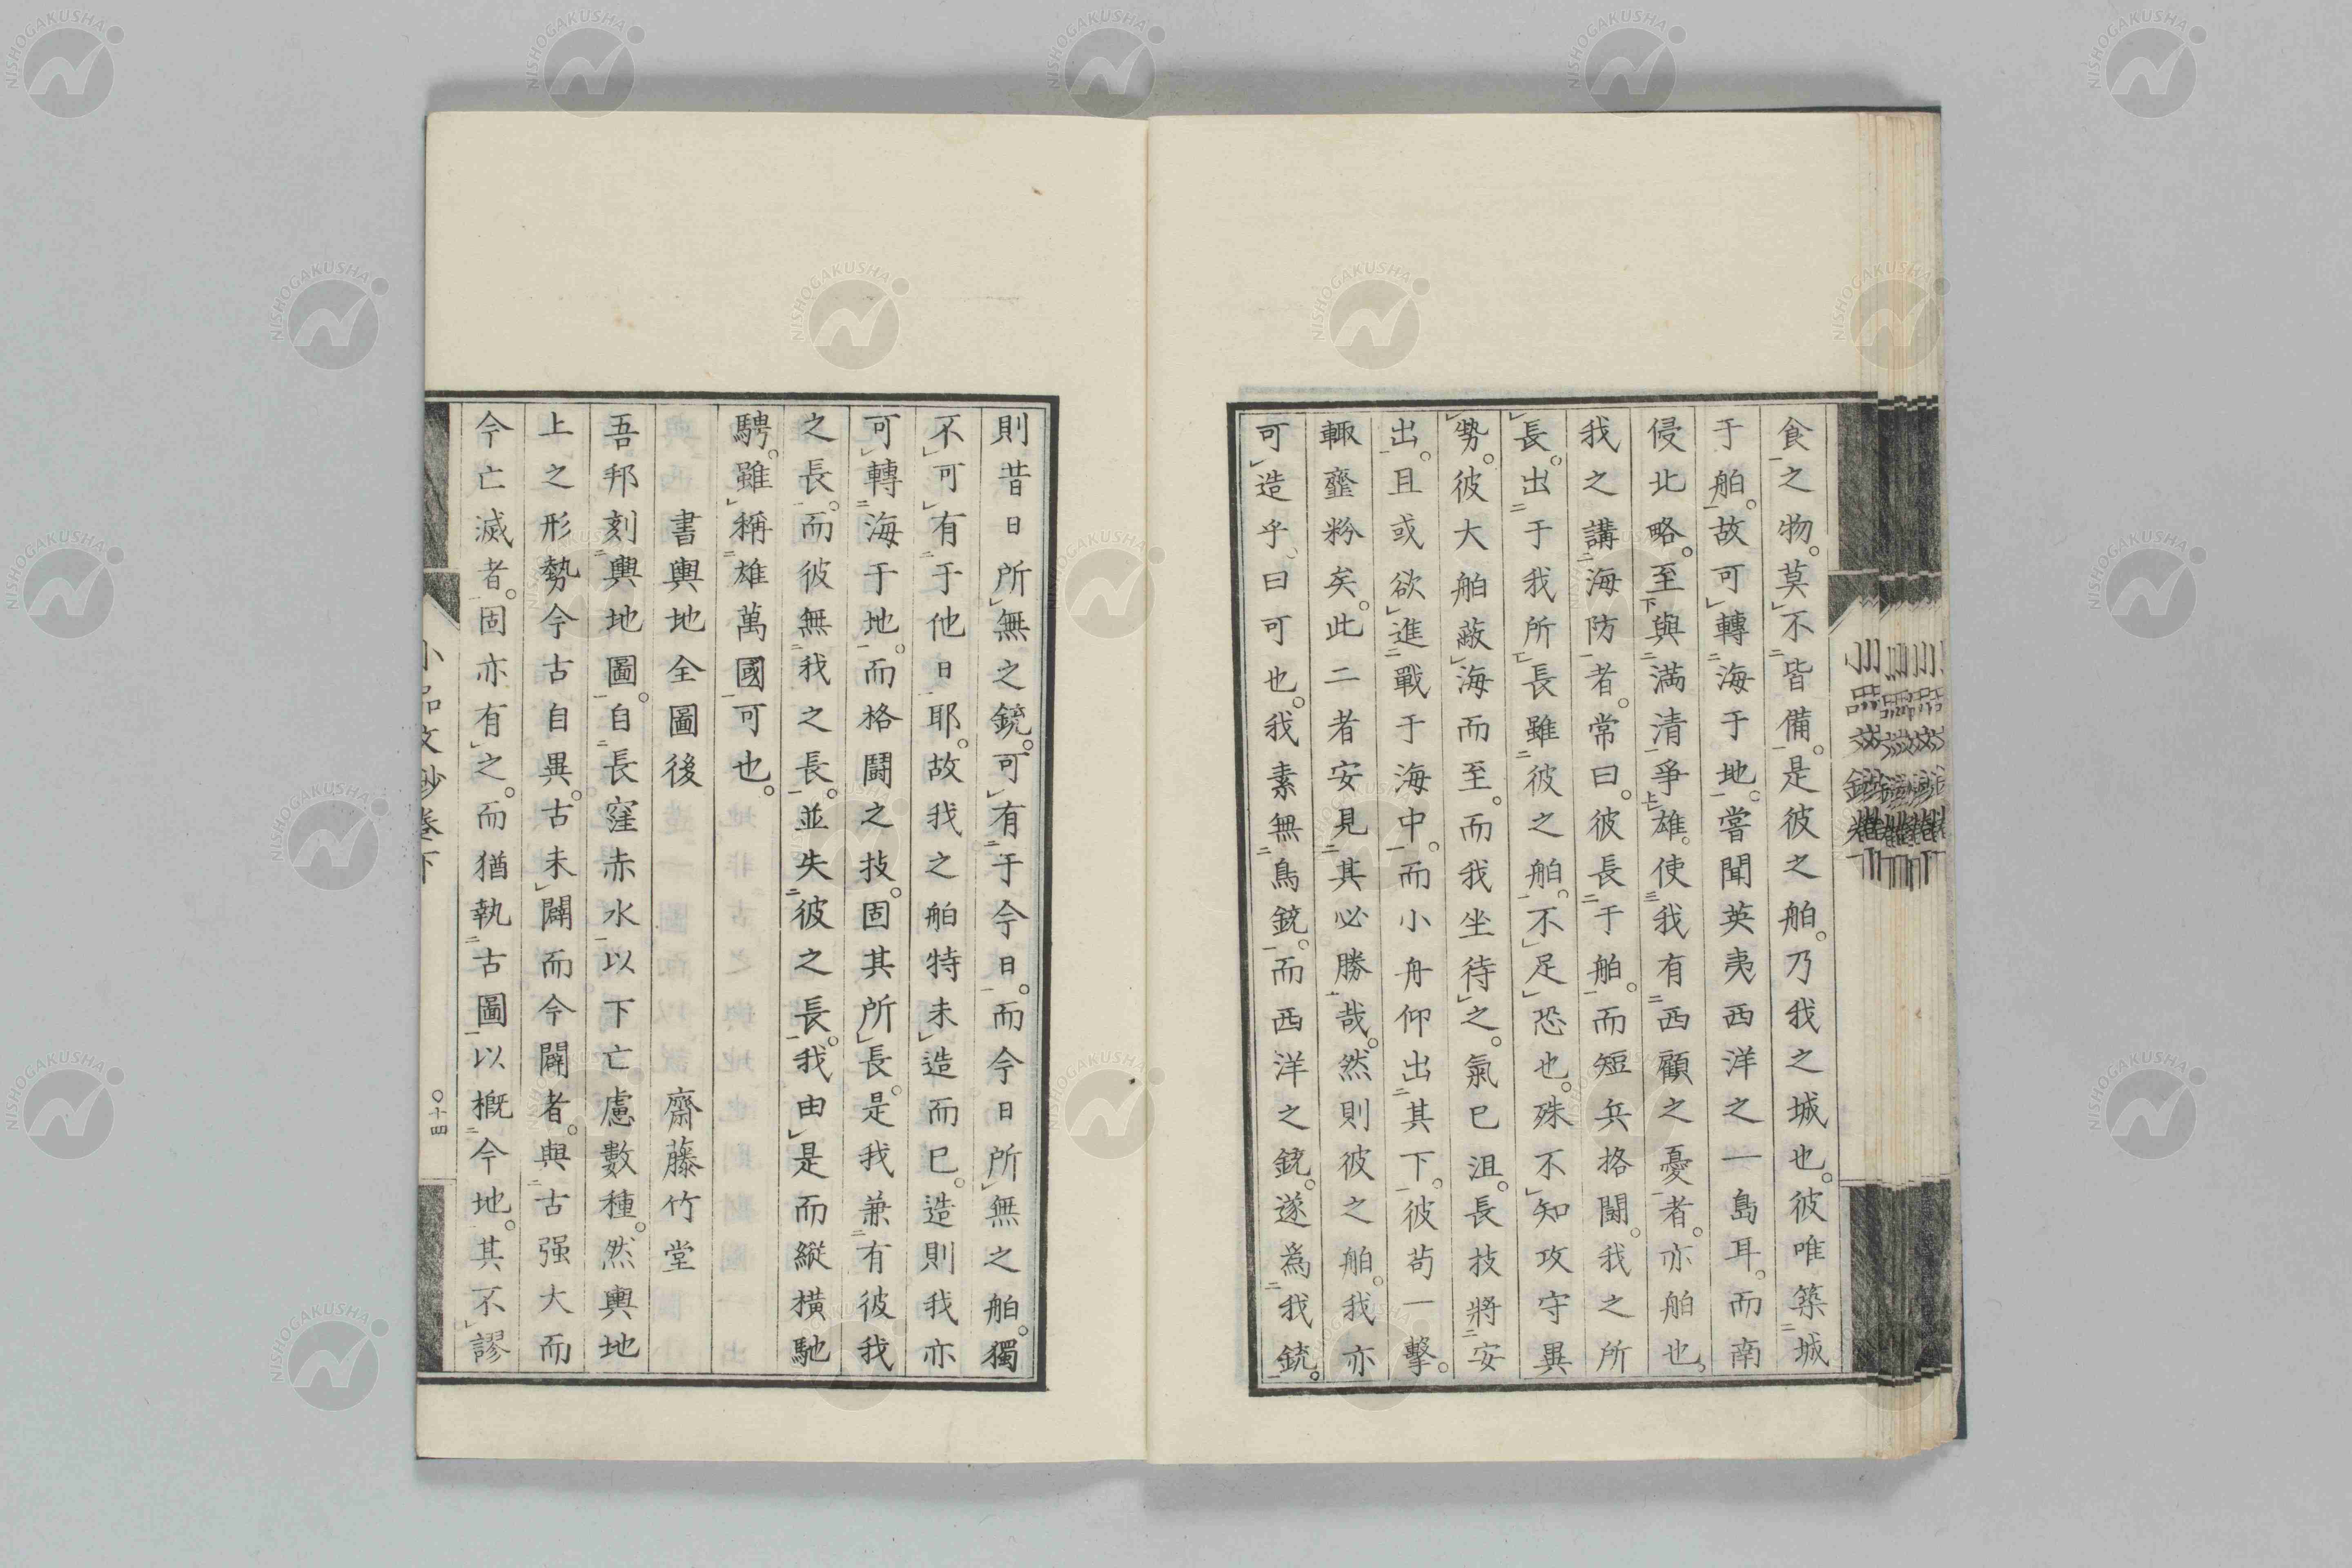 食之物。莫不皆備。是彼之舶。乃我之城也。彼唯築城
于舶。故可轉海于地。嘗聞英夷西洋之一島耳。而南
侵北略。至與満清爭雄。使我有西顧之憂者。亦舶也、
我之講海防者。常曰。彼長于舶。而短兵挌闘。我之所
長。出于我所長雖彼之舶。不足恐也。殊不知攻守異
勢。彼大舶蔽海而至。而我坐待之。氣已沮。長技將安
出。且或欲進戰于海中。而小舟仰出其下。彼苟一擊。
輙虀粉矣。此二者安見其必勝哉。然則彼之舶。我亦
可造乎、曰可也。我素無鳥銃。而西洋之銃。遂爲我銃。
則昔日所無之銃。可有于今日。而今日所無之舶。獨
不可有于他日耶。故我之舶特未造而已。造則我亦
可轉海于地。而格闘之技。固其所長。是我兼有彼我
之長。而彼無我之長。並失彼之長。我由是而縱横馳
騁。雖稱雄萬國可也。
書輿地全圖後 齋藤竹堂
吾邦刻輿地圖。自長窪赤水以下亡慮數種。然輿地
上之形勢今古自異。古未闢而今闢者。與古强大而
今亡滅者。固亦有之。而猶執古圖以概今地。其不謬
小品文鈔卷下 〇十四
NISHOGAKUSHA